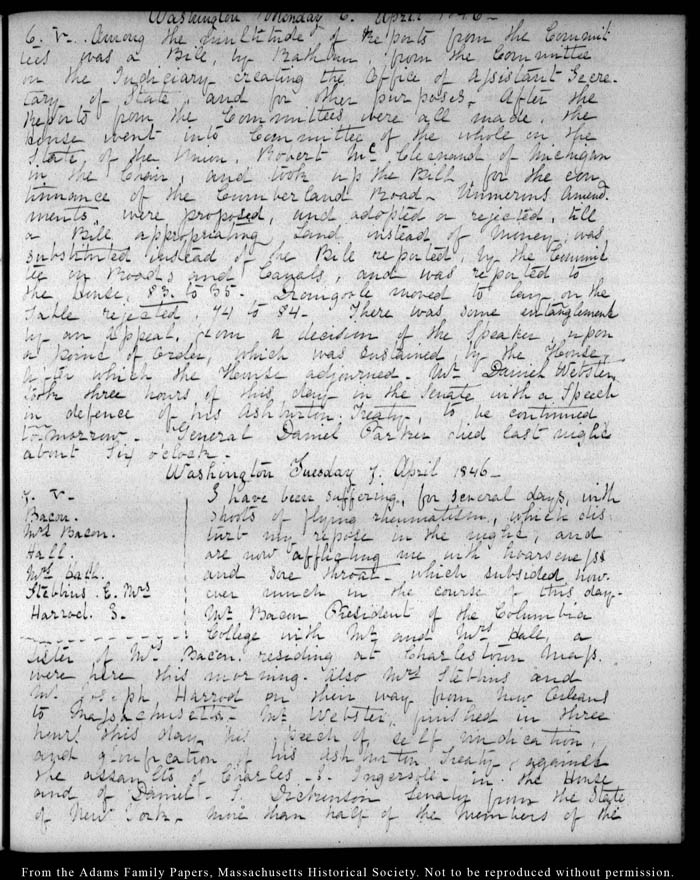 Washington Monday 6. April 1846-
6. V- Among the multitude of Reports from the Commit-
tees was a Bill, by Rathbun, from the Committee
on the Judiciary creating the Office of Assistant Secre-
tary of State, and for other purposes. After the
Reports from the Committees were all made, the
House went into Committee of the whole on the
State of the Union. Robert McClelland of Michigan
in the Chair, and took up the Bill for the con-
tinuance of the Cumberland Road- Numerous amend-
ments were proposed, and adopted or rejected, till
a Bill appropriating Land instead of Money, was
substituted instead of the Bill reported, by the Commit-
tee on Roads and Canals, and was reported to
the House, 83. to 35- Dromgoole moved to lay on the
Table rejected, 74 to 84- There was some entanglement
by an appeal, from a decision of the Speaker upon
a point of Order, which was sustained, by the House,
after which the House adjourned- Mr Daniel Webster
took three hours of this day in the Senate with a Speech
in defence of his Ashburton Treaty, to be continued
tomorrow- General Daniel Parker died last night
about six o'clock-
Washington Tuesday 7. April 1846-
7. V-
Bacon.
Mrs Bacon.
Hall.
Mrs Hall.
Stebbins. E. Mrs
Harrod. S-
I have been suffering, for several days, with
shoots of flying rheumatism, which dis-
turb my repose in the night, and
are now afflicting me with hoarseness
and sore throat- which subsided how-
ever much in the course of this day-
Mr Bacon President of the Columbia
College with Mr and Mrs Hall, a
Sister of Mrs Bacon residing at Charlestown Mass.
were here this morning. Also Mrs Stebbins and
Mr Joseph Harrod on their way from New Orleans
to Massachusetts- Mr Webster, finished in three
hours this day his Speech of self vindication,
and glorification of his Ashburton Treaty, against
the assaults of Charles J. Ingersoll- in the House
and of Daniel S. Dickinson Senator from the State
of New York- more than half of the members of the
From the Adams Family Papers, Massachusetts Historical Society. Not to be reproduced without permission.